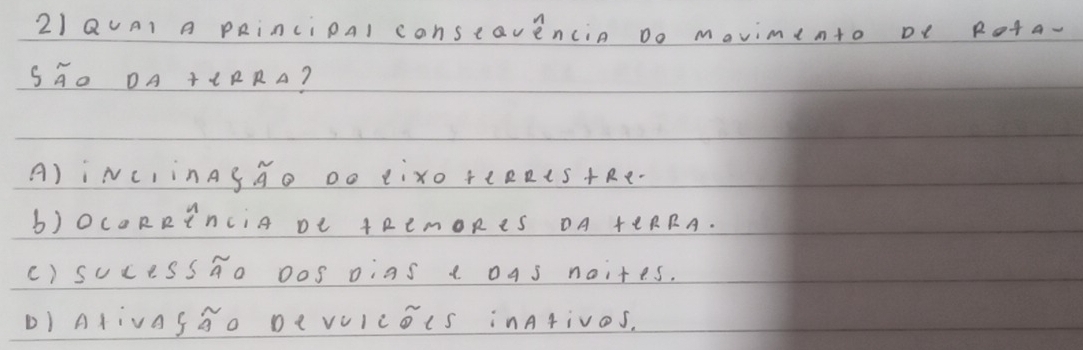 2) Qual a principal consequência do movimento de rota-
ção da terra?
A) inclinação do eixo terrestre.
b) Ocorrência de tremores da terra.
c) sucessão dos dias e das noites.
D) Ativação de vulcões inativos.